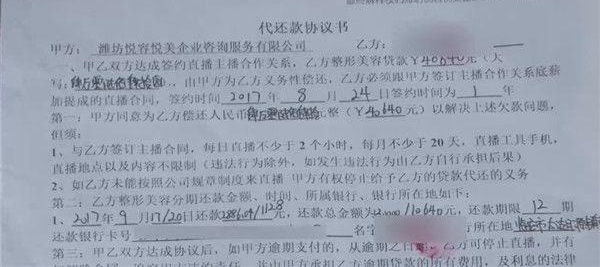 代还款协议书
甲方：潍坊悦容悦美企业咨询服务有限公司 乙方：
一、甲乙双方达成签约直播主播合作关系，乙方整形美容贷款¥40640元（大
写：，由甲方为乙方义务性偿还，乙方必须跟甲方签订主播合作关系底薪
加提成的直播合同，签约时间 2017 年 8 月 24 日签约时间为 1 年
第一：甲方同意为乙方偿还人民币 元整（¥40640元）以解决上述欠款问题，
但须：
1、与乙方签订主播合同，每日直播不少于2个小时，每月不少于20天，直播工具手机，
直播地点以及内容不限制（违法行为除外，如发生违法行为由乙方自行承担后果）
2、如乙方未能按照公司规章制度来直播 甲方有权停止给予乙方的贷款代还的义务
第二：乙方整形美容分期还款金额、时间、所属银行、银行所在地如下：
1、2017年9月17/20日还款 /1128元，还款总金额为 /10640元，还款期限 12 期
还款银行卡号 名字 行所在地
第三：甲乙双方达成协议后，如甲方逾期支付的，从逾期之日 乙方可停止直播，并有
的责任，并由甲方承担乙方逾期贷款的所有费用，及利息的法律